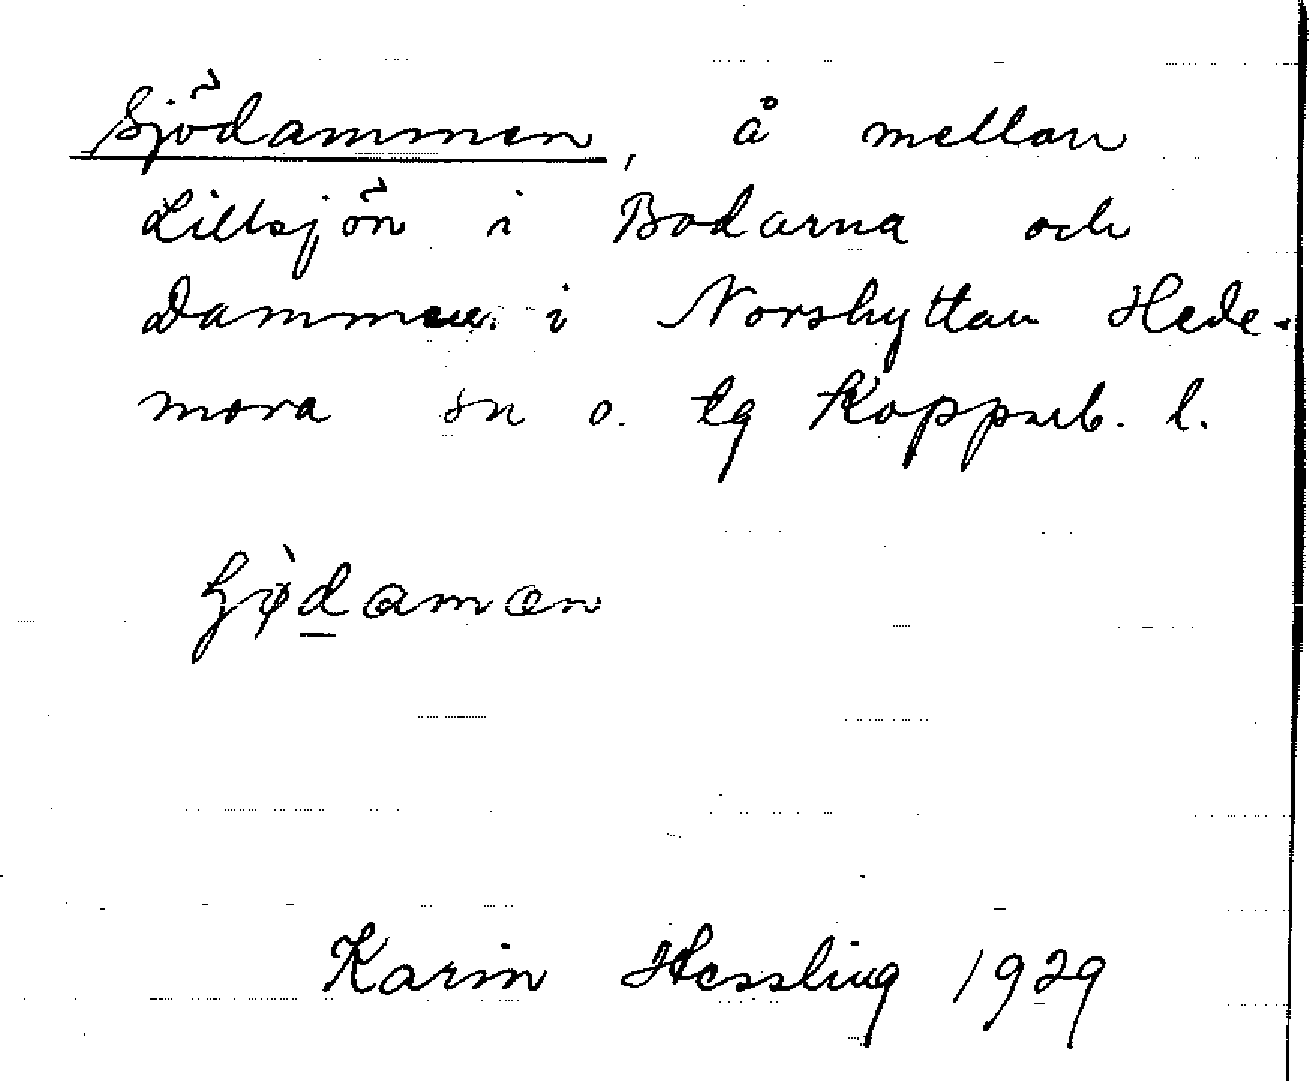 Sjödammen, å mellan
Lillsjön i Bodarna och
Dammen i Norshyttan Hede-
mora sn o. tg Kopparb. l.
Karin Hessling 1929